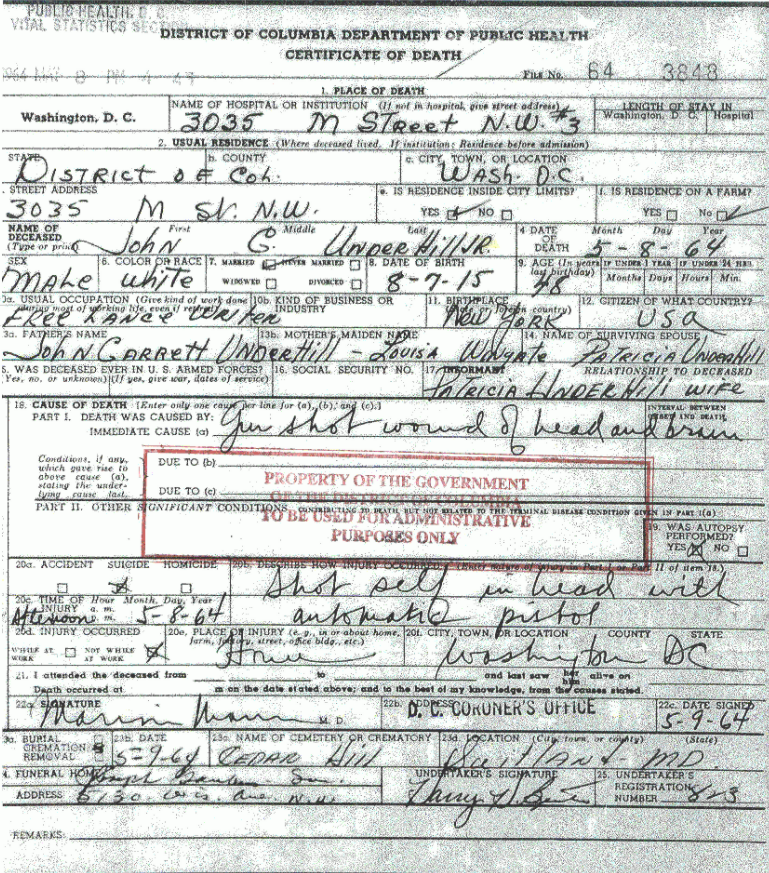 PUBLIC HEALTH, D. C.
VITAL STATISTICS SECTION
DISTRICT OF COLUMBIA DEPARTMENT OF PUBLIC HEALTH
CERTIFICATE OF DEATH
1964 MAY 8 PM 4 47
FILE No. 64 3848
1. PLACE OF DEATH
Washington, D. C.
NAME OF HOSPITAL OR INSTITUTION (If not in hospital, give street address)
3035 M STreet N.W. #3
LENGTH OF STAY IN
Washington, D. C. Hospital
2. USUAL RESIDENCE (Where deceased lived. If institution: Residence before admission)
STATE
DISTRICT OF COL.
b. COUNTY
c. CITY, TOWN, OR LOCATION
WASH. D.C.
STREET ADDRESS
3035 M St. N.W.
e. IS RESIDENCE INSIDE CITY LIMITS?
YES NO
f. IS RESIDENCE ON A FARM?
YES NO
NAME OF DECEASED (Type or print)
First Middle Last
John G. UNDERHILL JR.
4 DATE OF DEATH Month Day Year
5-8-64
SEX
MALE
6. COLOR OR RACE
White
7. MARRIED NEVER MARRIED
WIDOWED DIVORCED
8. DATE OF BIRTH
8-7-15
9. AGE (In years last birthday)
48
IF UNDER 1 YEAR IF UNDER 24 HRS.
Months Days Hours Min.
0a. USUAL OCCUPATION (Give kind of work done during most of working life, even if retired)
FREE LANCE WRITER
10b. KIND OF BUSINESS OR INDUSTRY
11. BIRTHPLACE (State or foreign country)
NEW YORK
12. CITIZEN OF WHAT COUNTRY?
USA
3a. FATHER'S NAME
John GARRETT UNDERHill
13b. MOTHER'S MAIDEN NAME
LOUISA WINGATE
14. NAME OF SURVIVING SPOUSE
PATRICIA UNDERHill
5. WAS DECEASED EVER IN U. S. ARMED FORCES?
Yes, no, or unknown) (If yes, give war, dates of service)
16. SOCIAL SECURITY NO.
17. INFORMANT RELATIONSHIP TO DECEASED
PATRICIA UNDERHill WIFE
18. CAUSE OF DEATH [Enter only one cause per line for (a), (b), and (c).]
PART I. DEATH WAS CAUSED BY:
IMMEDIATE CAUSE (a) Gun shot wound of head and brain
INTERVAL BETWEEN ONSET AND DEATH
Conditions, if any, which gave rise to above cause (a), stating the underlying cause last.
DUE TO (b)
DUE TO (c)
PROPERTY OF THE GOVERNMENT
OF THE DISTRICT OF COLUMBIA
TO BE USED FOR ADMINISTRATIVE
PURPOSES ONLY
PART II. OTHER SIGNIFICANT CONDITIONS CONTRIBUTING TO DEATH, BUT NOT RELATED TO THE TERMINAL DISEASE CONDITION GIVEN IN PART I(a)
19. WAS AUTOPSY PERFORMED?
YES NO
20a. ACCIDENT SUICIDE HOMICIDE
20b. DESCRIBE HOW INJURY OCCURRED (Enter nature of injury in Part I or Part II of item 18.)
Shot self in head with
automatic pistol
20c. TIME OF INJURY Hour Month, Day, Year
a. m.
p. m.
Afternoon 5-8-64
20d. INJURY OCCURRED
WHILE AT WORK NOT WHILE AT WORK
20e. PLACE OF INJURY (e. g., in or about home, farm, factory, street, office bldg., etc.)
Home
20f. CITY, TOWN, OR LOCATION COUNTY STATE
Washington DC
21. I attended the deceased from to and last saw her him alive on
Death occurred at m on the date stated above; and to the best of my knowledge, from the causes stated.
22a. SIGNATURE
M. D.
22b. ADDRESS
D. C. CORONER'S OFFICE
22c. DATE SIGNED
5-9-64
3a. BURIAL
CREMATION
REMOVAL
23b. DATE
5-9-64
23c. NAME OF CEMETERY OR CREMATORY
CEDAR Hill
23d. LOCATION (City, town, or county) (State)
Suitland - MD.
4. FUNERAL HOME
ADDRESS 5130 Wis Ave. N.W.
UNDERTAKER'S SIGNATURE
25. UNDERTAKER'S REGISTRATION NUMBER 823
REMARKS: